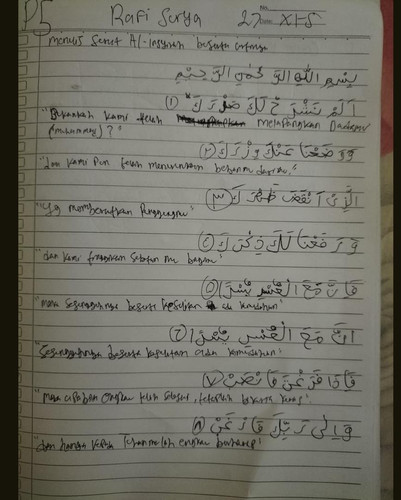 P5 Rafi Surya 27 XI-5
menulis Surat Al-Insyirah beserta artinya
بِسْمِ اللهِ الرَّحْمٰنِ الرَّحِيْمِ
اَلَمْ نَشْرَحْ لَكَ صَدْرَكَ (١)
"Bukankah kami telah melapangkan Dadamu
(muhammad)?"
وَوَضَعْنَا عَنْكَ وِزْرَكَ (٢)
"dan kami Pun telah menurunkan bebanmu darimu."
الَّذِيْ اَنْقَضَ ظَهْرَكَ (٣)
"yg memberatkan Punggungmu"
وَرَفَعْنَا لَكَ ذِكْرَكَ (٤)
"dan kami tinggikan sebutan mu bagimu"
فَاِنَّ مَعَ الْعُسْرِ يُسْرًا (٥)
"maka sesungguhnya beserta kesulitan ada kemudahan"
اِنَّ مَعَ الْعُسْرِ يُسْرًا (٦)
"Sesungguhnya beserta kesulitan ada kemudahan"
فَاِذَا فَرَغْتَ فَانْصَبْ (٧)
"maka apabila engkau telah selesai, tetaplah bekerja keras"
وَاِلٰى رَبِّكَ فَارْغَبْ (٨)
"dan hanya kepada Tuhanmulah engkau berharap"